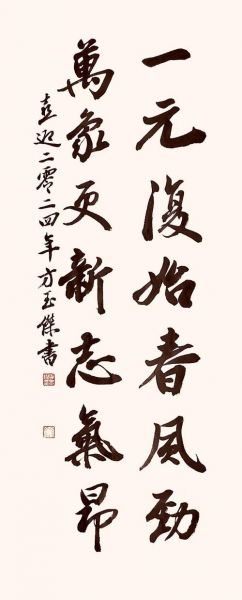 一元復始春風勁
萬象更新志氣昂
喜迎二零二四年方玉傑書